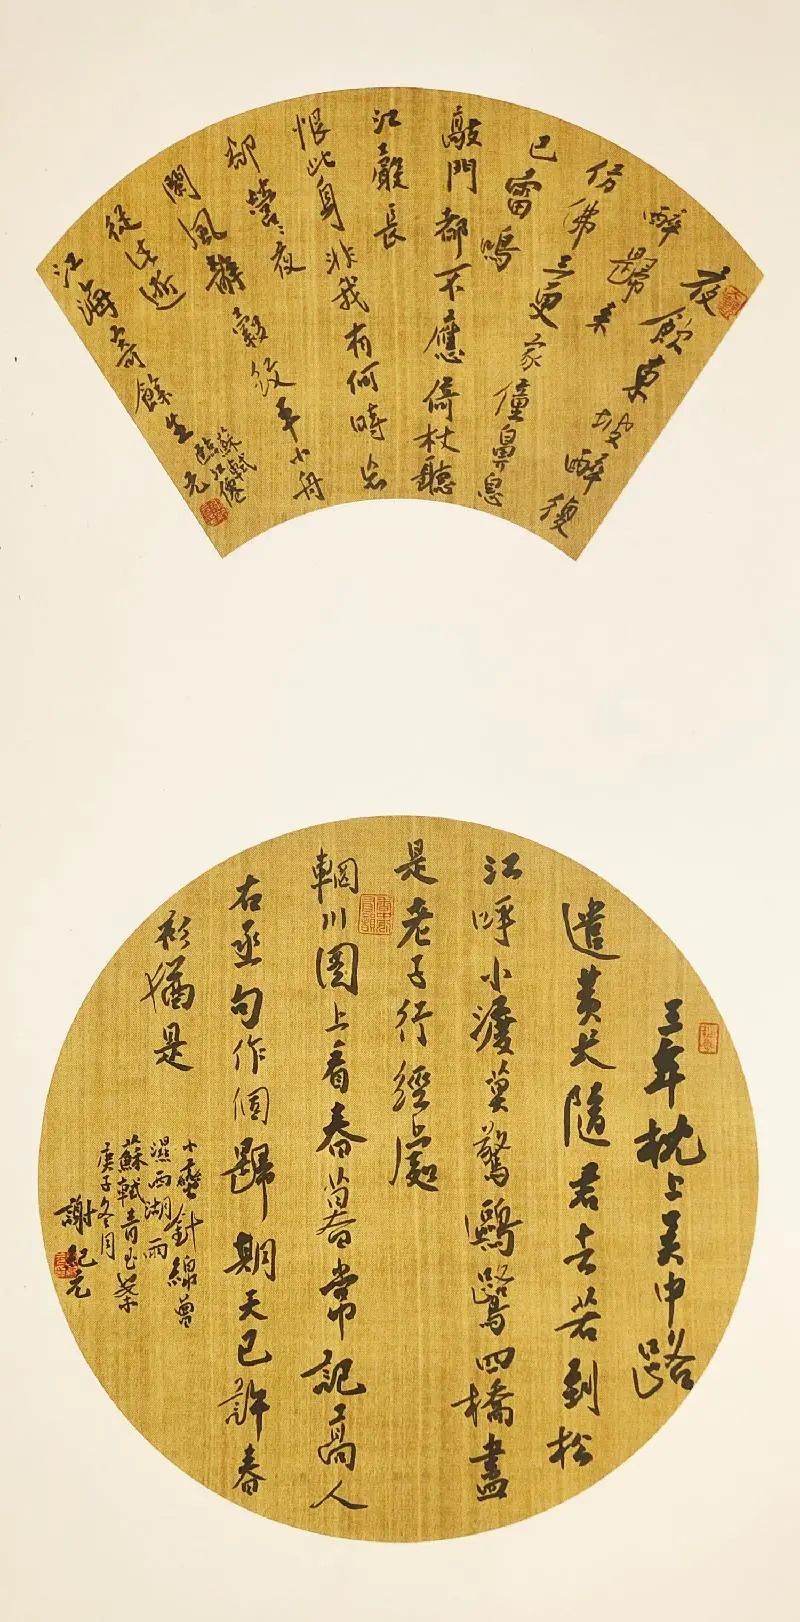 夜飲東坡醉復
醉歸来
仿佛三更家僮鼻息
已雷鳴
敲門都不應倚杖聽
江聲長
恨此身非我有何時忘
却營〻夜
闌風静縠紋平小舟
從此逝
江海寄餘生
蘇軾
臨江僊
元
三年枕上吴中路
遣黄犬隨君去若到松
江呼小渡莫驚鷗鷺四橋盡
是老子行經處
輞川圖上看春暮常記高人
右丞句作個歸期天已許春
衫猶是
小蠻針線曾
濕西湖雨
蘇軾青玉案
庚子冬月
謝紀元